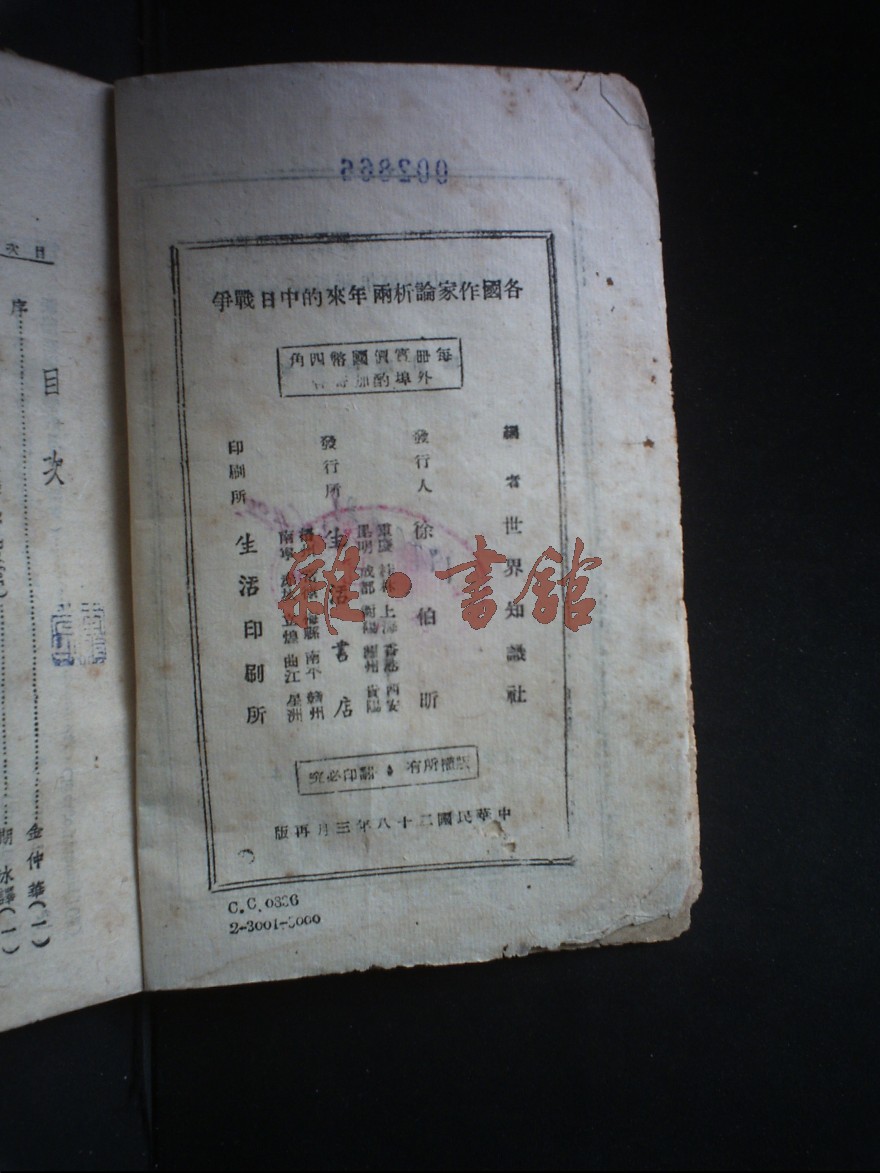 各國作家論析兩年來的中日戰爭
每冊實價國幣四角
外埠酌加
編者 世界知識社
發行人 徐伯昕
重慶 桂林 上海 香港 西安
昆明 成都 衡陽 蘭州 貴陽
發行所 生活書店
梅縣 南平 贛州
南寧 立煌 曲江 星洲
印刷所 生活印刷所
版權所有 翻印必究
中華民國二十八年三月再版
2-3001-5000
目次
目次
序 金仲華(一)
譯(一)
雜·書館